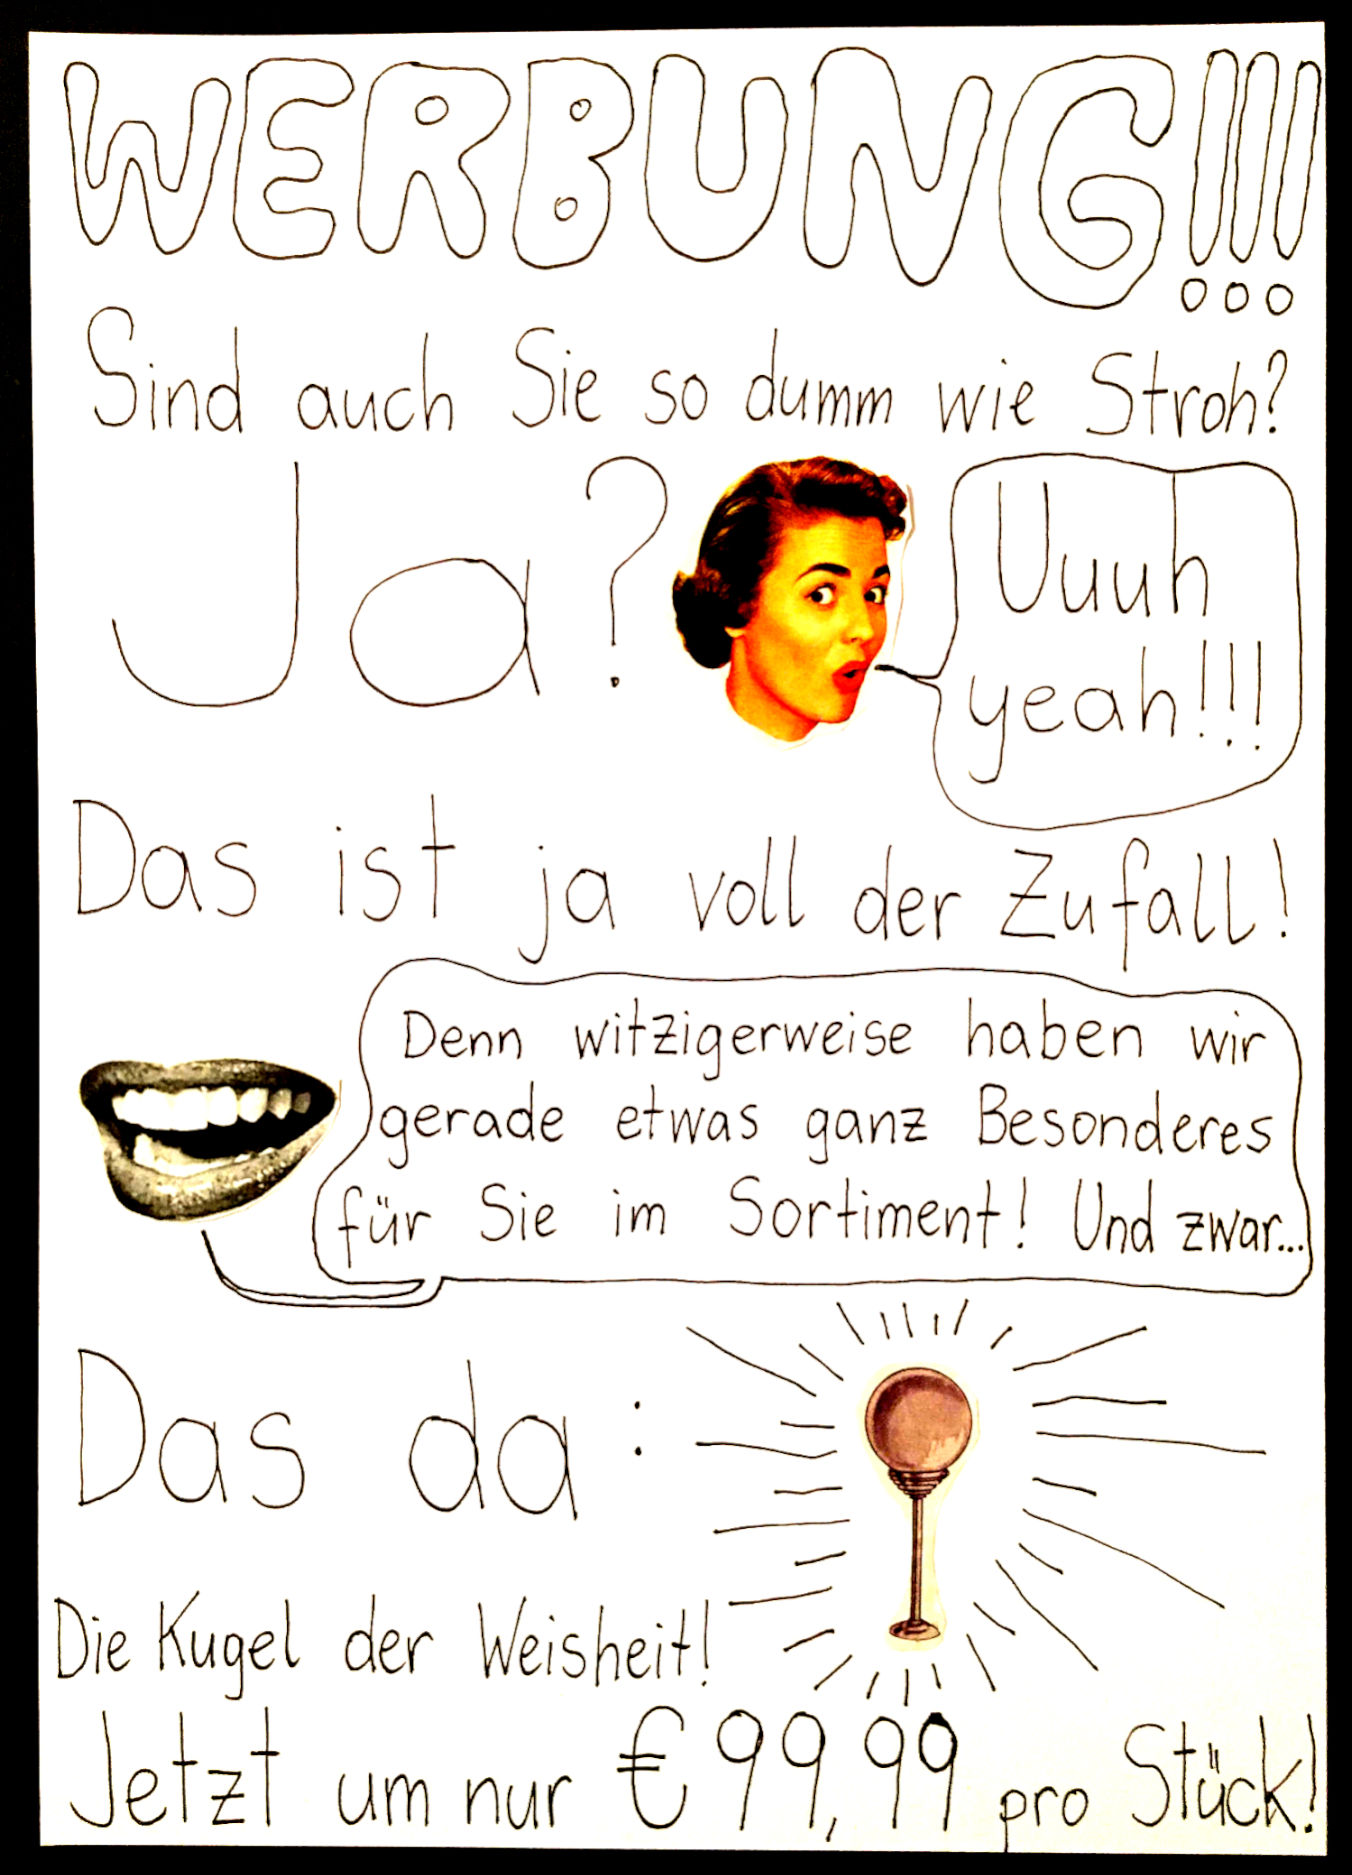 WERBUNG!!!
Sind auch Sie so dumm wie Stroh?
Ja?
Uuuh
yeah!!!
Das ist ja voll der Zufall!
Denn witzigerweise haben wir
gerade etwas ganz Besonderes
für Sie im Sortiment! Und zwar...
Das da:
Die Kugel der Weisheit!
Jetzt um nur € 99,99 pro Stück!